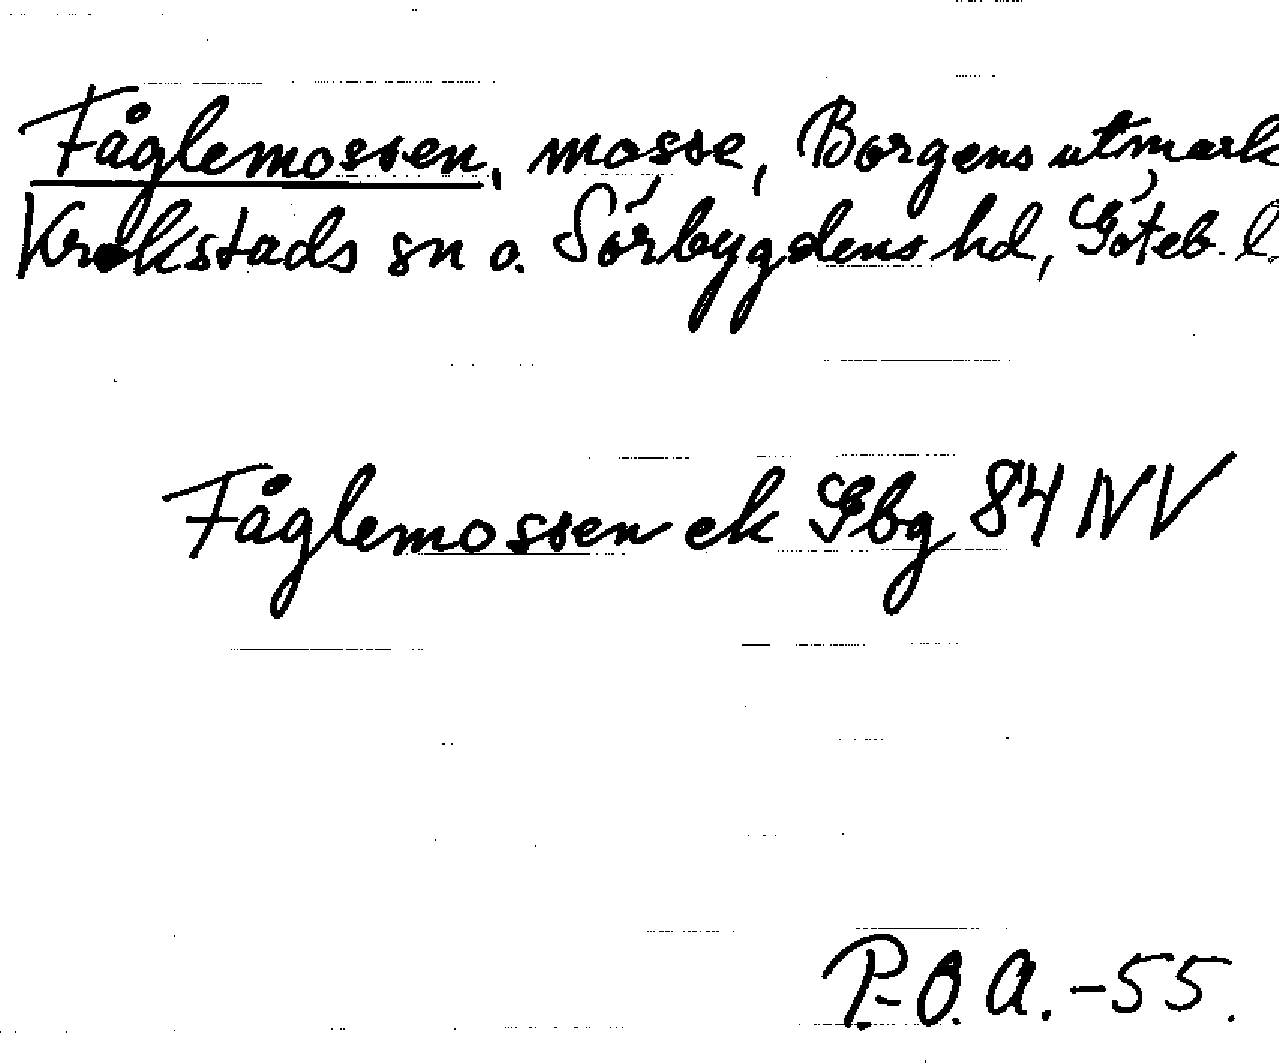 Fåglemossen, mosse, Borgens utmark
Krokstads sn o. Sörbygdens hd, Göteb. l.
Fåglemossen ek Gbg 84 NV
P.-O. A. -55.